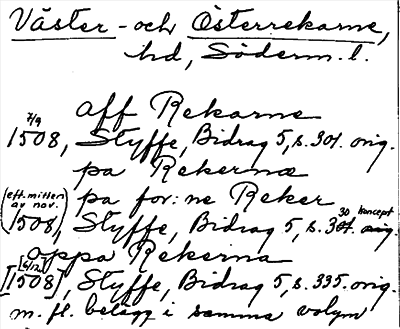 Väster- och Österrekarne,
hd, Söderm. l.
aff Rekarne
7/9
1508, Styffe, Bidrag 5, s. 301. orig.
pa Rekernæ
(eft. mitten av nov.) pa for:ne Reker
1508, Styffe, Bidrag 5, s. 30 koncept
oppa Rekerna
[6/12]
[1508], Styffe, Bidrag 5, s. 335. orig.
m. fl. belägg i samma volym